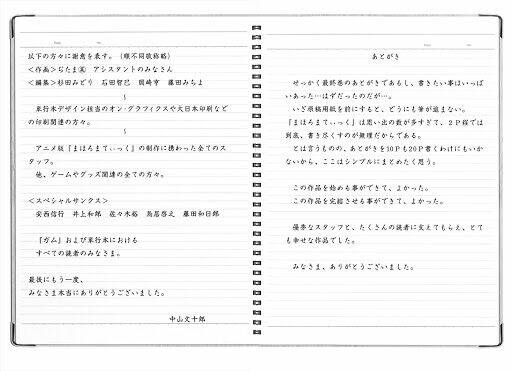 あとがき
せっかく最終巻のあとがきであるし、書きたい事はいっぱ
いあった…はずだったのだが…。
いざ原稿用紙を前にすると、どうにも筆が進まない。
『まほろまてぃっく』は思い出の数が多すぎて、２Ｐ程では
到底、書き尽くすのが無理だからである。
とは言うものの、あとがきを10Ｐも20Ｐ書くわけにもいか
ないから、ここはシンプルにまとめたく思う。
この作品を始める事ができて、よかった。
この作品を完結させる事ができて、よかった。
優秀なスタッフと、たくさんの読者に支えてもらえ、とて
も幸せな作品でした。
みなさま、ありがとうございました。
以下の方々に謝意を表す。（順不同敬称略）
＜作画＞ぢたま アシスタントのみなさん
＜編集＞杉田みどり 石田智巳 岡崎亨 藤田みちよ
〜
単行本デザイン担当のオン・グラフィクスや大日本印刷など
の印刷関連の方々。
〜
アニメ版『まほろまてぃっく』の制作に携わった全てのス
タッフ。
他、ゲームやグッズ関連の全ての方々。
＜スペシャルサンクス＞
安西信行 井上和郎 佐々木裕 鳥居啓之 藤田和日郎
『ガム』および単行本における
すべての読者のみなさま。
最後にもう一度、
みなさま本当にありがとうございました。
中山文十郎